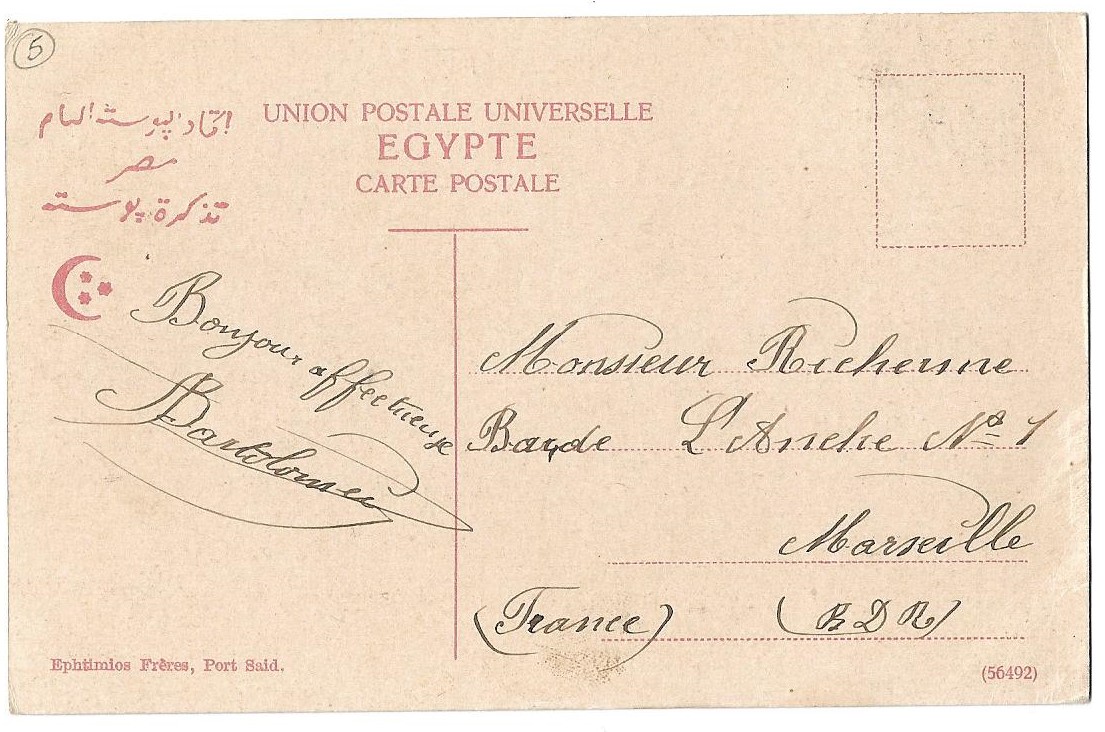 5
اتحاد پوسته العام
مصر
تذكرة پوسته
UNION POSTALE UNIVERSELLE
EGYPTE
CARTE POSTALE
Bonjour affectueuse
Bartolomeu
Monsieur Richerme
Barde L'Anche Nº 1
Marseille
(France) (BDR)
Ephtimios Frères, Port Said.
(56492)